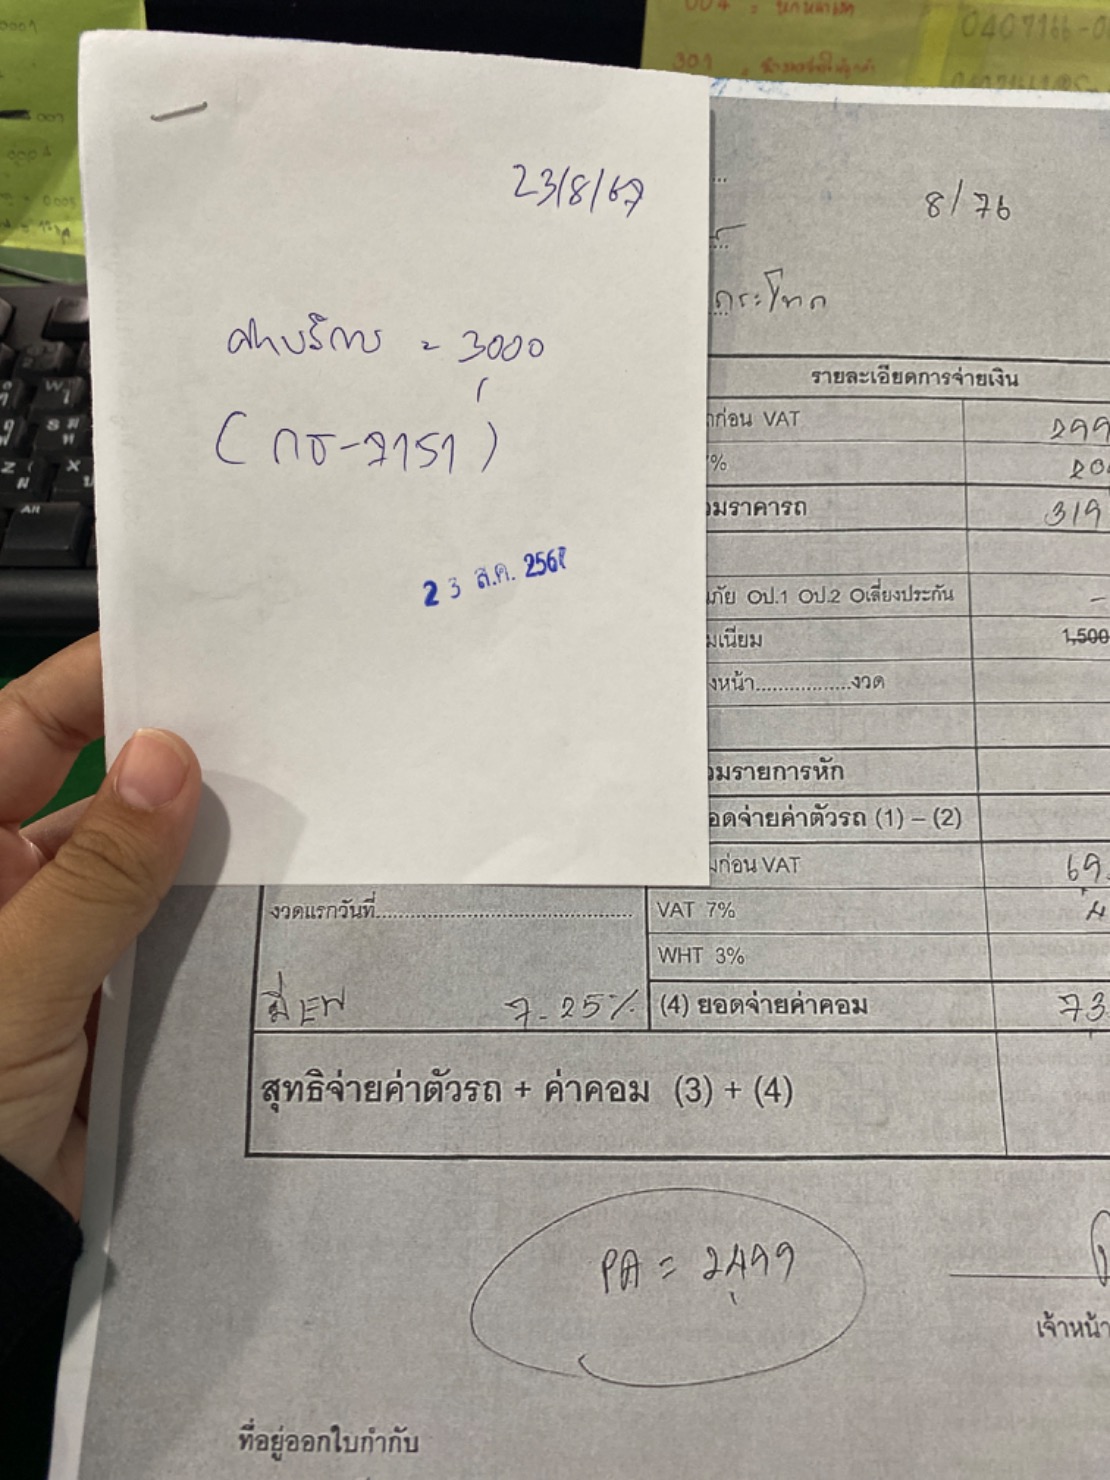 23/8/67
ค่าบริการ = 3000
(กธ-7151)
23 ส.ค. 2567
8/76
กระโทก
รายละเอียดการจ่ายเงิน
ก่อน VAT
299
%
20
มราคารถ
319
ภัย Oป.1 Oป.2 Oเลี่ยงประกัน
-
มเนียม
1,500
งหน้า.................งวด
วมรายการหัก
อดจ่ายค่าตัวรถ (1) – (2)
ก่อน VAT
69
งวดแรกวันที่.............................................
VAT 7%
4
WHT 3%
7.25%
(4) ยอดจ่ายค่าคอม
73
สุทธิจ่ายค่าตัวรถ + ค่าคอม (3) + (4)
PA = 2,499
เจ้าหน้า
ที่อยู่ออกใบกำกับ